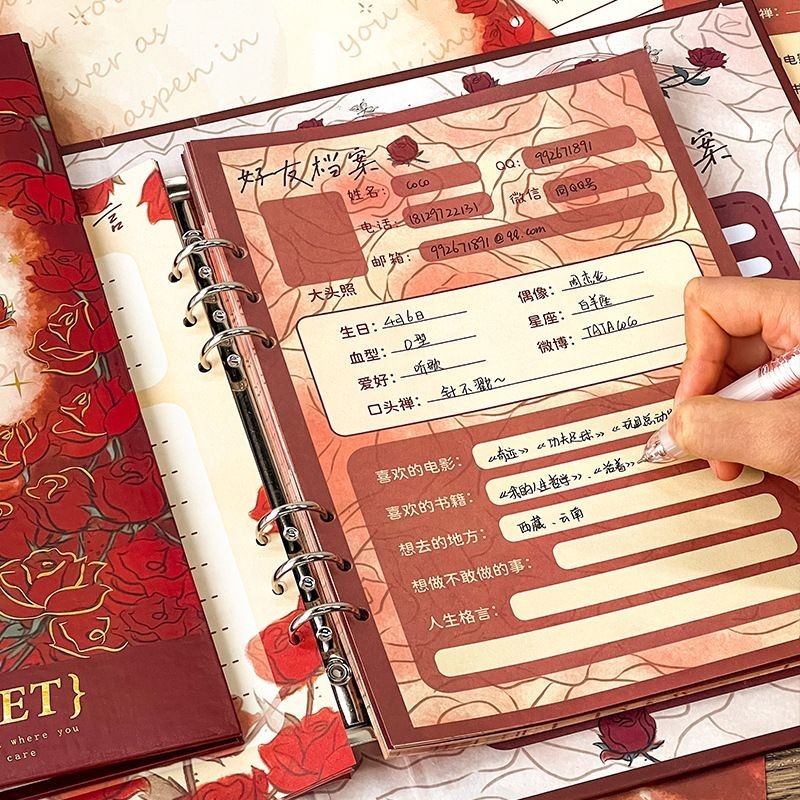 you
iver as
aspen in
案
禅：
言
好友档案
姓名：coco
QQ：992671891
电话：18129722131
微信 同QQ号
邮箱：992671891@qq.com
大头照
生日：4月6日
偶像：周杰伦
血型：O型
星座：白羊座
爱好：听歌
微博：TATACOCO
口头禅：针不戳~
喜欢的电影：《奇迹》《功夫足球》《玩具总动
喜欢的书籍：《我的人生哲学》、《活着》
想去的地方：西藏、云南
想做不敢做的事：
人生格言：
ET}
where you
care